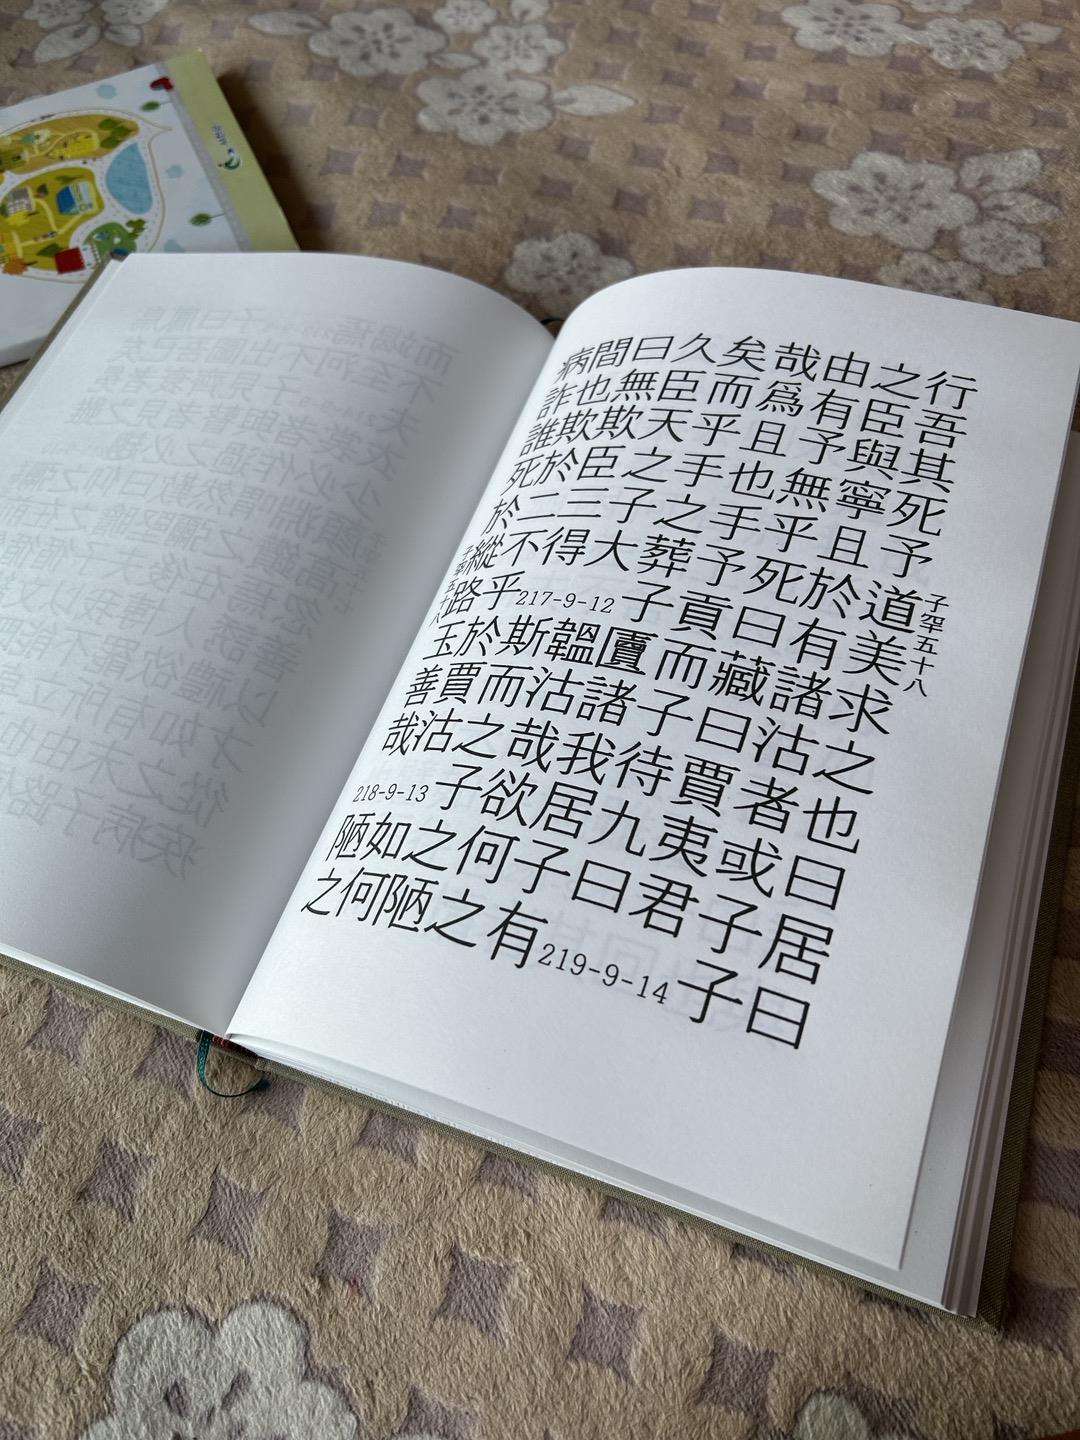 病間曰久矣哉由之行
詐也無臣而爲有臣吾
誰欺欺天乎且予與其
死於臣之手也無寧死
於二三子之手乎且予
縱不得大葬予死於道
路乎217-9-12子貢曰有美
玉於斯韞匵而藏諸求
善賈而沽諸子曰沽之
哉沽之哉我待賈者也
218-9-13子欲居九夷或曰
陋如之何子曰君子居
之何陋之有219-9-14子曰
子罕五十八